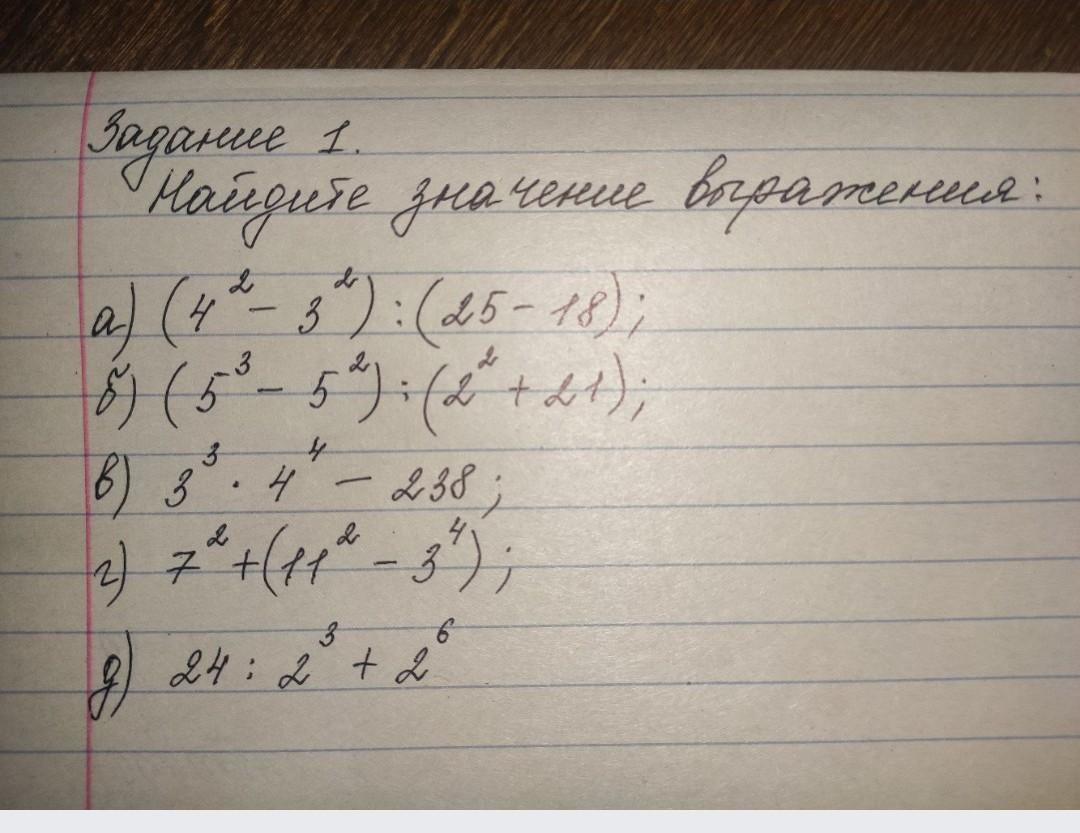 Задание 1.
Найдите значение выражения:
а) (4² - 3²) : (25 - 18);
б) (5³ - 5²) : (2² + 21);
в) 3³ · 4⁴ - 238;
г) 7² + (11² - 3⁴);
д) 24 : 2³ + 2⁶